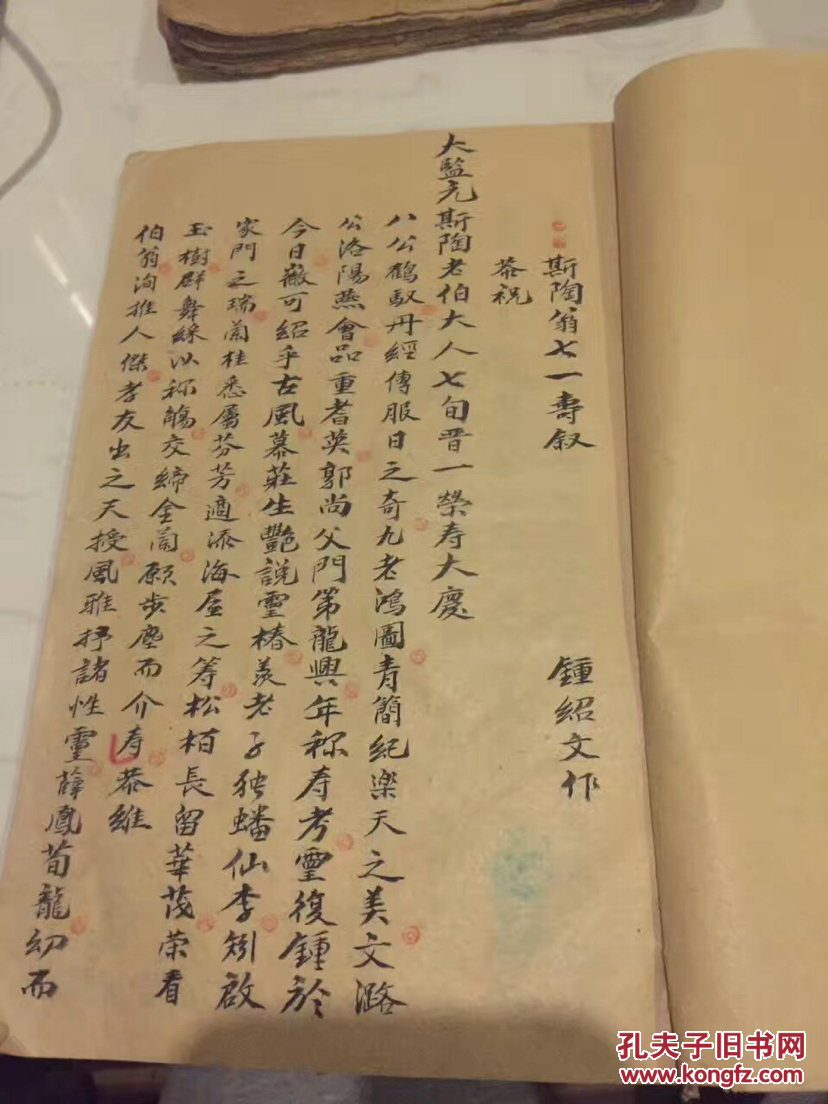 斯陶翁七一壽叙 鍾紹文作
恭祝
大監元斯陶老伯大人七旬晋一榮寿大慶
八公鶴馭丹經傳服日之奇九老鴻圖青簡紀樂天之美文潞
公洛陽燕會品重耆英郭尚父門第龍興年称寿考靈復鍾於
今日徽可紹乎古風慕莊生艷說靈椿羨老子独蟠仙李矧啟
家門之瑞蘭桂悉屬芬芳適添海屋之筹松栢長留華茂荣看
玉樹群舞綵以称觴交締金蘭願步塵而介寿恭維
伯翁洵推人傑孝友出之天授風雅抒諸性靈薛鳳荀龍幼而
孔夫子旧书网
www.kongfz.com